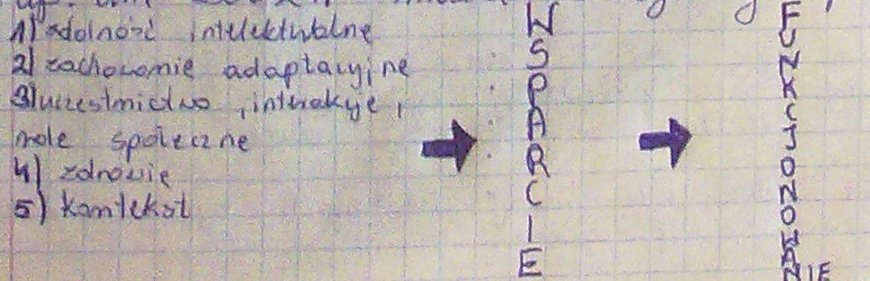 1) zdolność intelektualne
2) zachowanie adaptacyjne
3) uczestnictwo, interakcje,
role społeczne
4) zdrowie
5) kontekst
WSPARCIE
FUNKCJONOWANIE